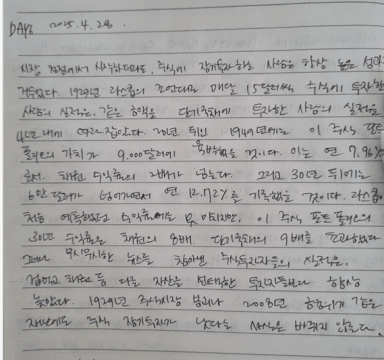 DAY8 2025.4.28
시장 정점에서 시작하더라도, 주식에 장기투자하는 사람은 항상 높은 성과
거두었다. 1929년 라스콥의 조언대로 매달 15달러씩 주식에 투자한
사람의 실적은, 같은 금액을 단기국채에 투자한 사람의 실적을
4년 내에 따라잡았다. 20년 뒤인 1949년에는 이 주식 포트
폴리오의 가치가 9,000달러에 육박했을 것이다. 이는 연 7.96%
로서, 채권 수익률의 2배가 넘는다. 그리고 30년 뒤에는
6만 달러가 넘어가면서 연 12.72%를 기록했을 것이다. 라스콥이
처음 예측했던 수익률에는 못 미치지만, 이 주식 포트폴리오의
30년 수익률은 채권의 8배, 단기국채의 9배를 초과했다
그러나 무시무시한 폭락을 참아낸 주식투자자들의 실적은,
겁먹고 채권 등 다른 자산을 선택한 투자자들보다 항상
높았다. 1929년 주식시장 붕괴나 2008년 금융위기 같은
재난에도 주식 장기투자가 낫다는 사실은 바뀌지 않는다.